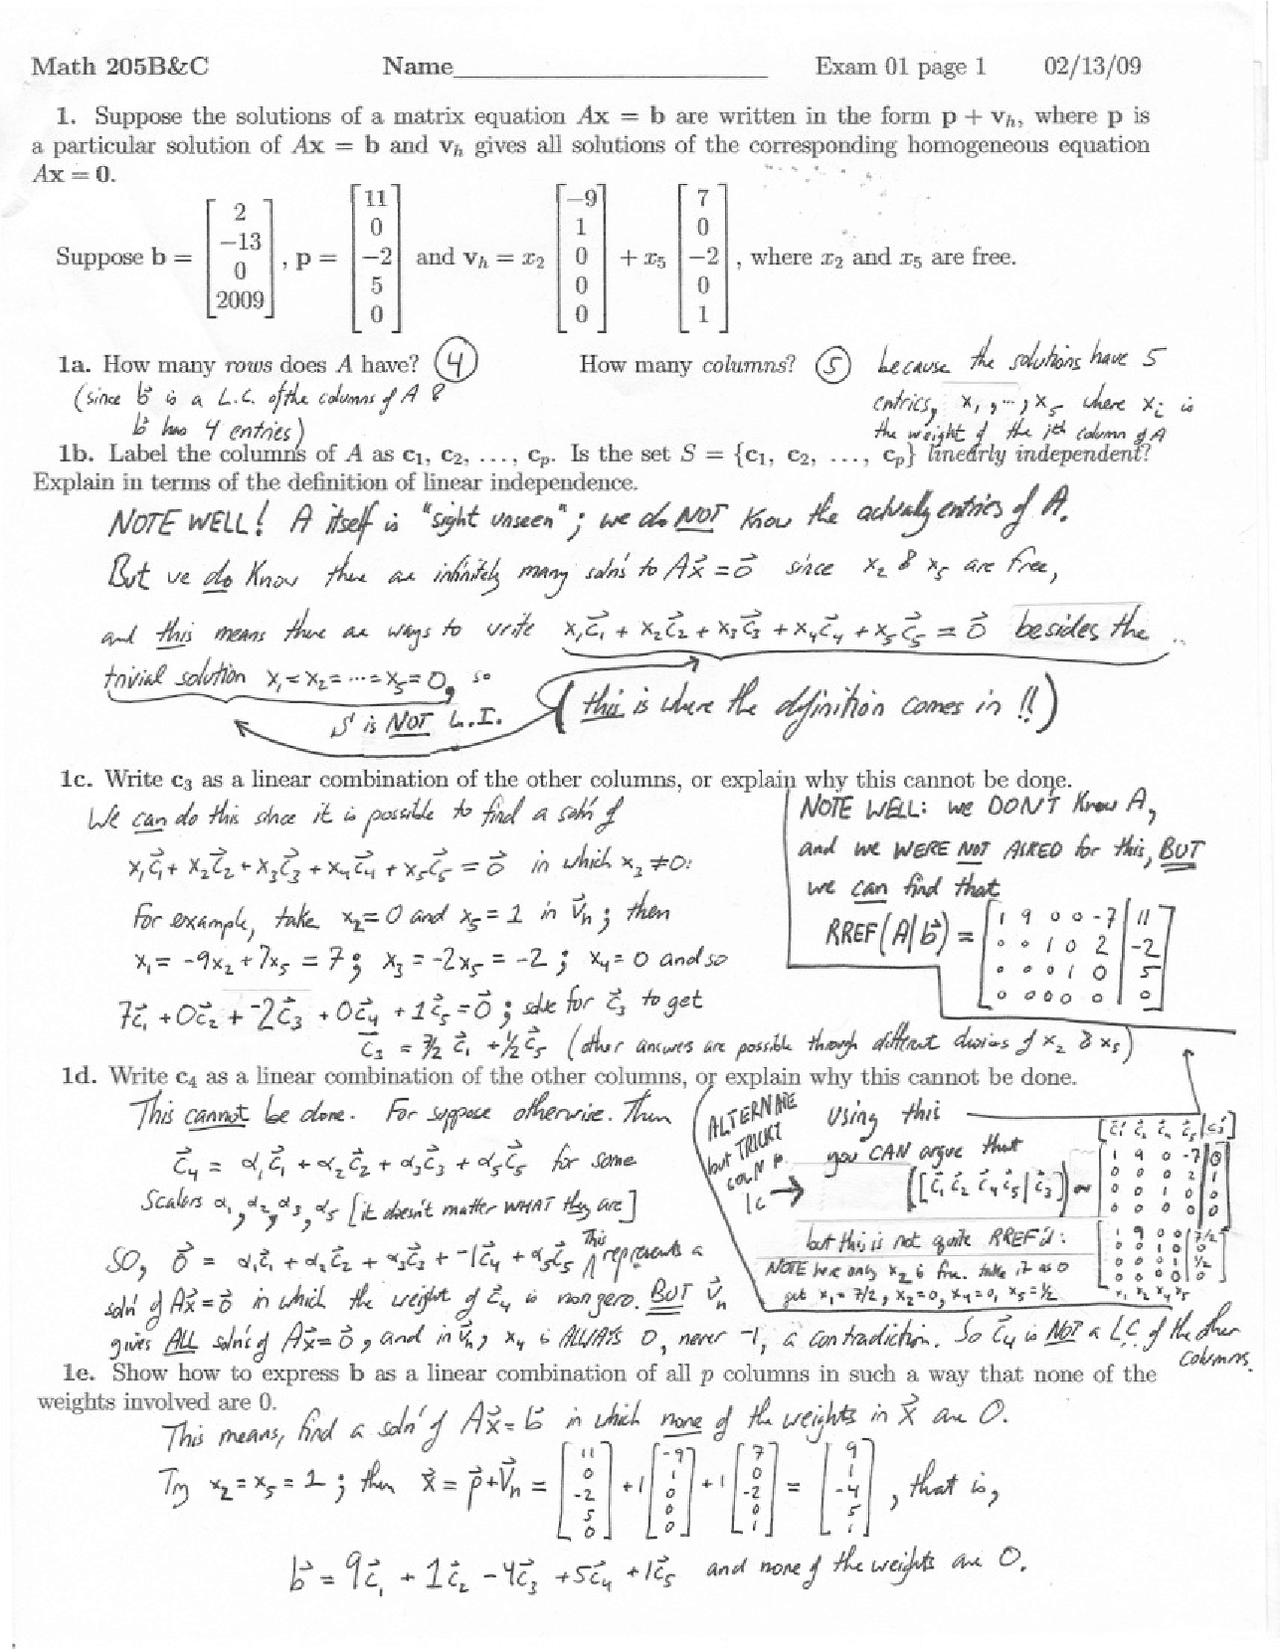 Math 205B&C Name Exam 01 page 1 02/13/09
1. Suppose the solutions of a matrix equation Ax = b are written in the form p + vₕ, where p is
a particular solution of Ax = b and vₕ gives all solutions of the corresponding homogeneous equation
Ax = 0.
Suppose b = [2 −13 0 2009], p = [11 0 −2 5 0] and vₕ = x₂ [−9 1 0 0 0] + x₅ [7 0 −2 0 1], where x₂ and x₅ are free.
1a. How many rows does A have? 4 How many columns? 5 because the solutions have 5
(since b⃗ is a L.C. of the columns of A & entries, x₁, ..., x₅ where xᵢ is
b⃗ has 4 entries) the weight of the ith column of A
1b. Label the columns of A as c₁, c₂, ..., cₚ. Is the set S = {c₁, c₂, ..., cₚ} linearly independent?
Explain in terms of the definition of linear independence.
NOTE WELL! A itself is "sight unseen"; we do NOT know the actually entries of A.
But we do know there are infinitely many soln's to Ax⃗ = 0⃗ since x₂ & x₅ are free,
and this means there are ways to write x₁c⃗₁ + x₂c⃗₂ + x₃c⃗₃ + x₄c⃗₄ + x₅c⃗₅ = 0⃗ besides the
trivial solution x₁ = x₂ = ... = x₅ = 0, so
S is NOT L.I. (this is where the definition comes in!!)
1c. Write c₃ as a linear combination of the other columns, or explain why this cannot be done.
We can do this since it is possible to find a soln of
x₁c⃗₁ + x₂c⃗₂ + x₃c⃗₃ + x₄c⃗₄ + x₅c⃗₅ = 0⃗ in which x₃ ≠ 0:
For example, take x₂ = 0 and x₅ = 1 in v⃗ₕ; then
x₁ = -9x₂ + 7x₅ = 7; x₃ = -2x₅ = -2; x₄ = 0 and so
7c⃗₁ + 0c⃗₂ + -2c⃗₃ + 0c⃗₄ + 1c⃗₅ = 0⃗; solve for c⃗₃ to get
c⃗₃ = 7/2 c⃗₁ + 1/2 c⃗₅ (other answers are possible through different choices of x₂ & x₅)
NOTE WELL: we DON'T know A,
and we WERE NOT ASKED for this, BUT
we can find that
RREF(A|b⃗) = [1 9 0 0 -7 | 11
0 0 1 0 2 | -2
0 0 0 1 0 | 5
0 0 0 0 0 | 0]
1d. Write c₄ as a linear combination of the other columns, or explain why this cannot be done.
This cannot be done. For suppose otherwise. Then
c⃗₄ = α₁c⃗₁ + α₂c⃗₂ + α₃c⃗₃ + α₅c⃗₅ for some
scalars α₁, α₂, α₃, α₅ [it doesn't matter WHAT they are]
So, 0⃗ = α₁c⃗₁ + α₂c⃗₂ + α₃c⃗₃ + -1c⃗₄ + α₅c⃗₅ This represents a
soln of Ax⃗ = 0⃗ in which the weight of c⃗₄ is nonzero. BUT v⃗ₕ
gives ALL soln's of Ax⃗ = 0⃗, and in v⃗ₕ, x₄ is ALWAYS 0, never -1, a contradiction. So c⃗₄ is NOT a L.C. of the other
columns.
ALTERNATE
but TRICKY
1c →
Using this
you CAN argue that
([c⃗₁ c⃗₂ c⃗₄ c⃗₅ | c⃗₃]) ~
[c⃗₁ c⃗₂ c⃗₄ c⃗₅ | c⃗₃]
1 9 0 -7 | 0
0 0 0 2 | 1
0 0 1 0 | 0
0 0 0 0 | 0
but this is not quite RREF'd:
1 9 0 0 | 7/2
0 0 1 0 | 0
0 0 0 1 | 1/2
0 0 0 0 | 0
x₁ x₂ x₄ x₅
NOTE here only x₂ is free. take it as 0
get x₁ = 7/2, x₂ = 0, x₄ = 0, x₅ = 1/2
1e. Show how to express b as a linear combination of all p columns in such a way that none of the
weights involved are 0.
This means, find a soln of Ax⃗ = b⃗ in which none of the weights in x⃗ are 0.
Try x₂ = x₅ = 1; then x⃗ = p⃗ + v⃗ₕ = [11 0 -2 5 0] + 1 [-9 1 0 0 0] + 1 [7 0 -2 0 1] = [9 1 -4 5 1], that is,
b⃗ = 9c⃗₁ + 1c⃗₂ - 4c⃗₃ + 5c⃗₄ + 1c⃗₅ and none of the weights are 0.